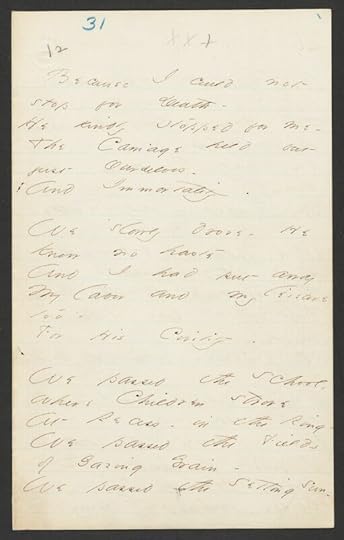 31
12
xxx
Because I could not
stop for Death -
He kindly stopped for me -
The Carriage held but
just Ourselves -
And Immortality .
We slowly drove - He
knew no haste
And I had put away
My labor and my leisure
too -
For His Civility .
We passed the School,
where Children strove
At Recess - in the Ring -
We passed the Fields
of Gazing Grain -
We passed the Setting Sun -